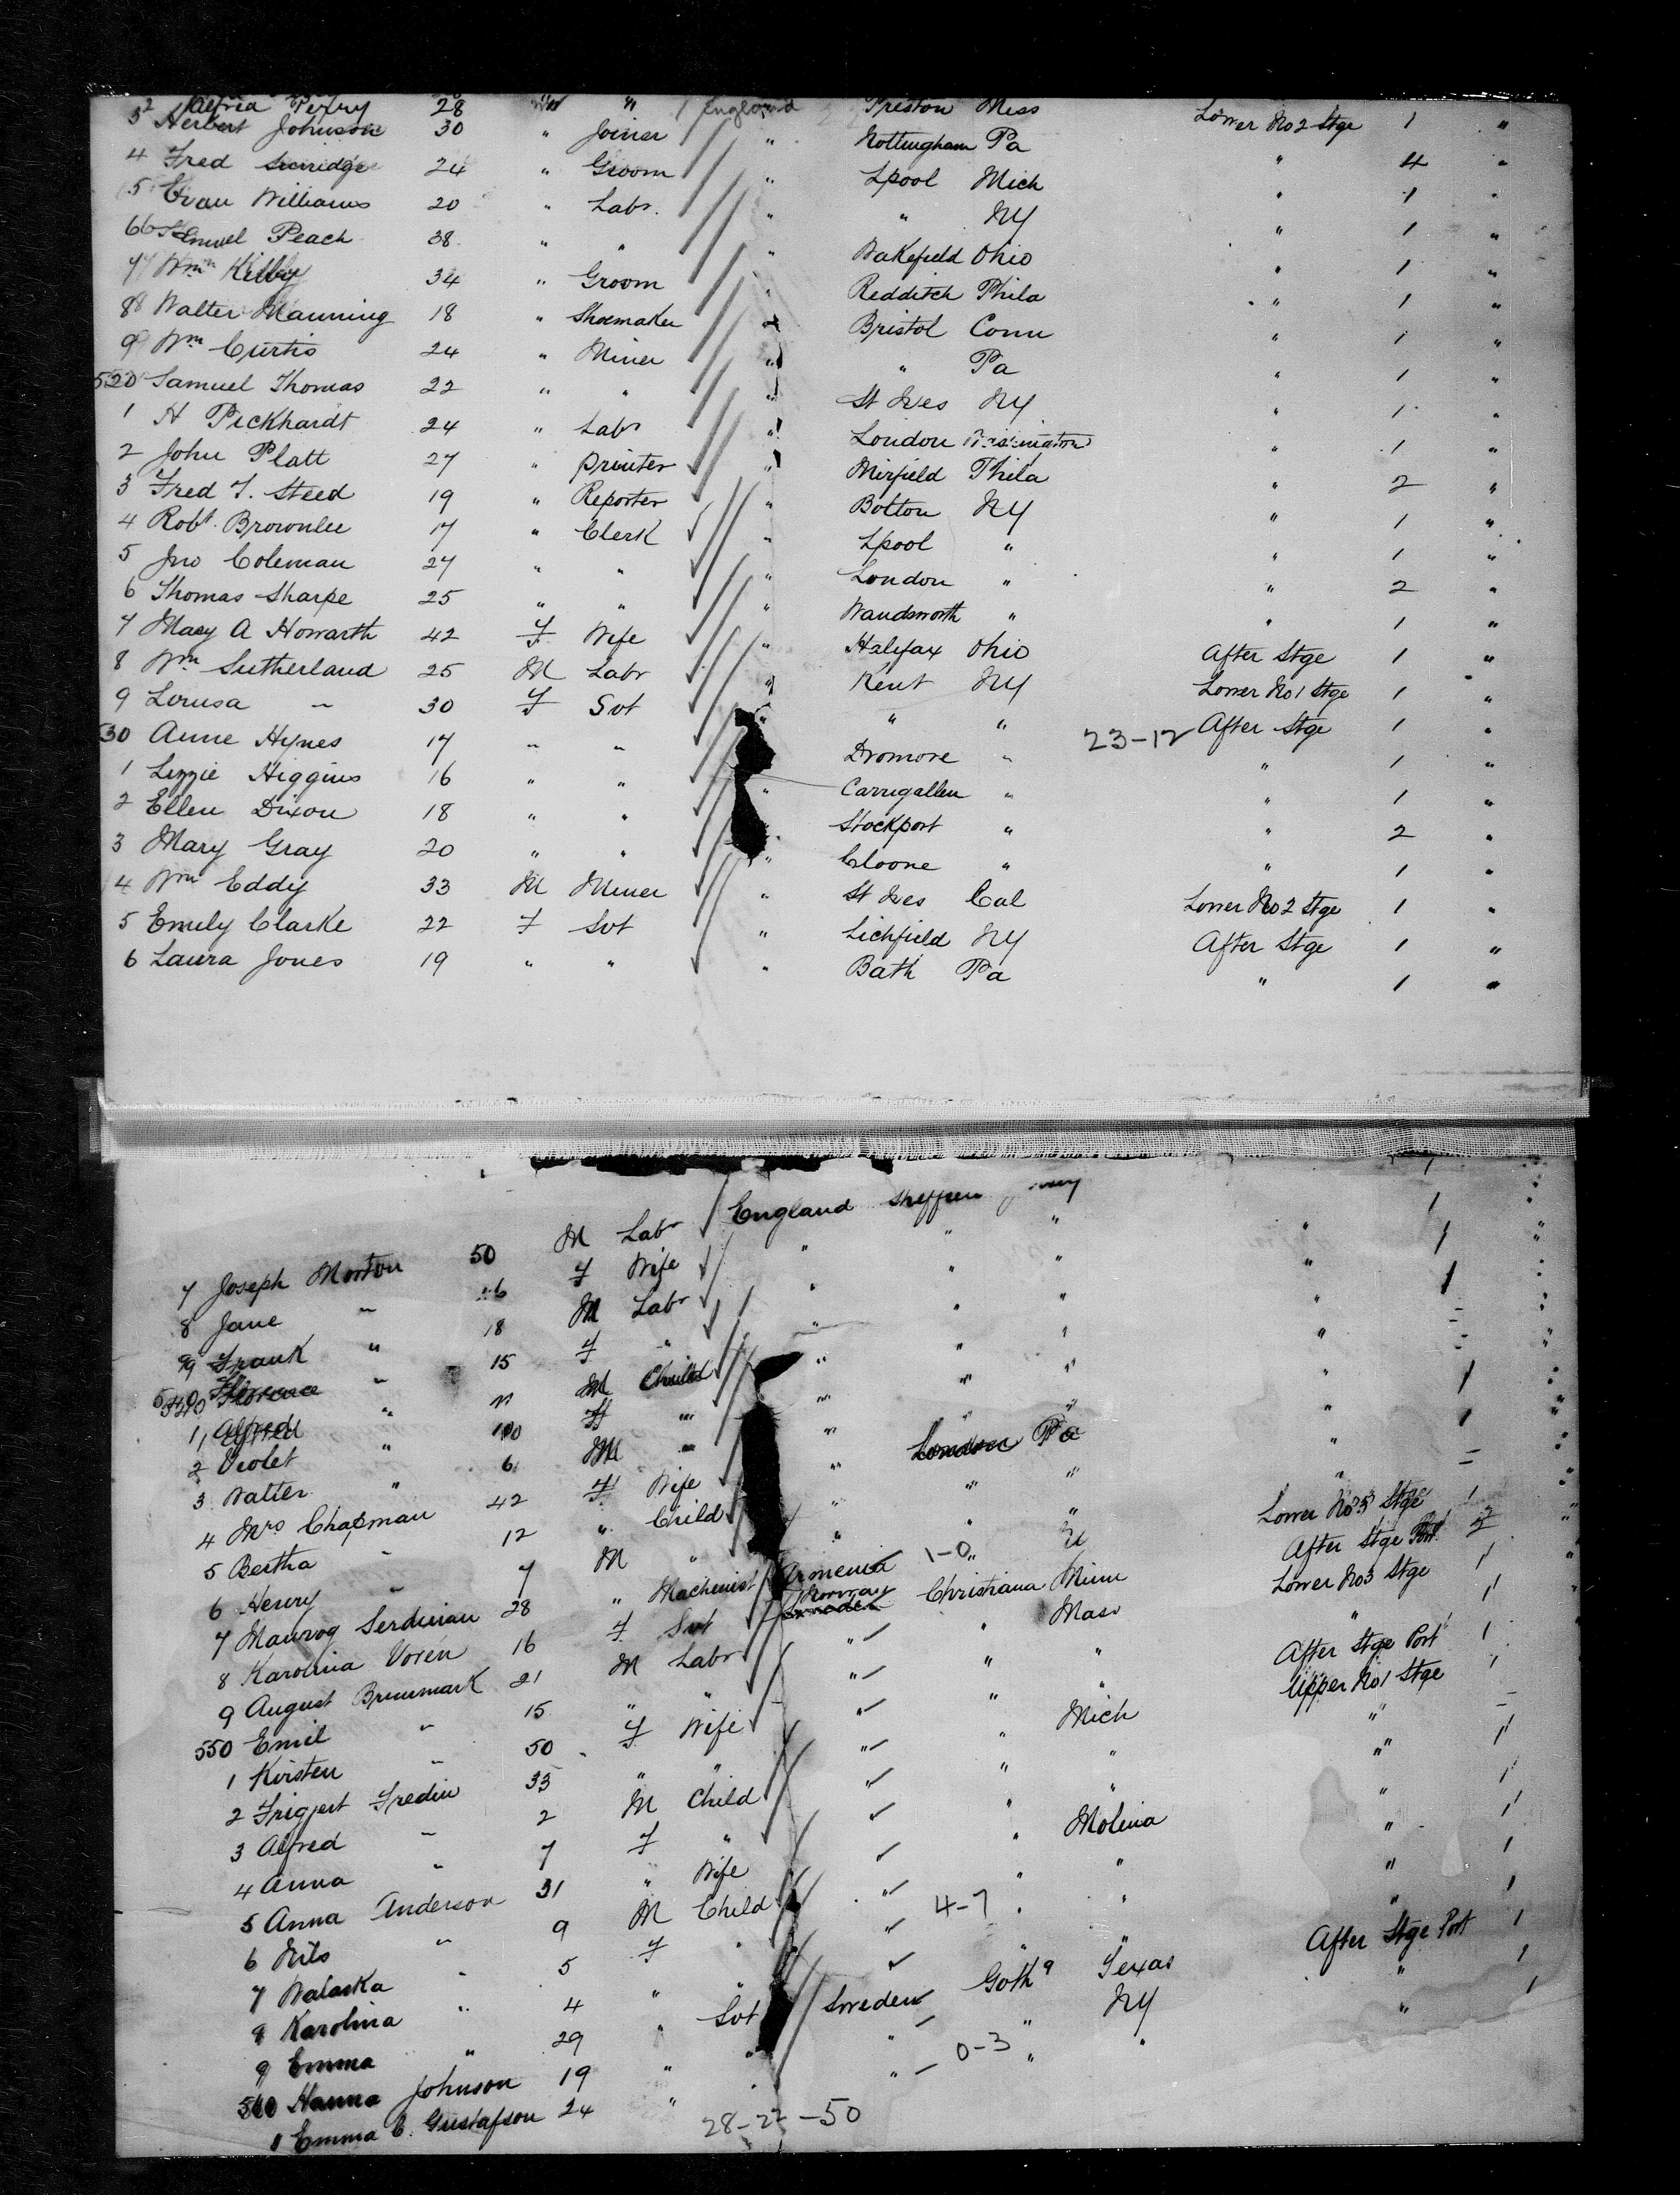 2 Alfred Perry 28 " " England Preston Mass
3 Herbert Johnson 30 " Joiner " Nottingham Pa Lower No 2 Stge 1 "
4 Fred 24 " Groom " Lpool Mich " 4 "
5 Evan Williams 20 " Labr. " " NY " 1 "
6 Samuel Peach 38 " " " Wakefield Ohio " 1 "
7 Wm Kilby 34 " Groom " Redditch Phila " 1 "
8 Walter Manning 18 " Shoemaker " Bristol Conn " 1 "
9 Wm Curtis 24 " Miner " " Pa " 1 "
520 Samuel Thomas 22 " " " St Ives NY " 1 "
1 H Peckhardt 24 " Labr " London Washington " 1 "
2 John Platt 27 " printer " Mirfield Phila " 1 "
3 Fred T. Steed 19 " Reporter " Bolton NY " 2 "
4 Robt. Brownlee 17 " Clerk " Lpool " " 1 "
5 Jno Coleman 27 " " " London " " 1 "
6 Thomas Sharpe 25 " " " Wandsworth " " 2 "
7 Mary A Howarth 42 F Wife " Halifax Ohio After Stge 1 "
8 Wm Sutherland 25 M Labr " Kent NY Lower No 1 Stge 1 "
9 Lousa " 30 F Svt " " " 23-12 After Stge 1 "
30 Anne Hynes 17 " " Dromore " " 1 "
1 Lizzie Higgins 16 " " " Carrigallen " " 1 "
2 Ellen Dixon 18 " " Stockport " " 2 "
3 Mary Gray 20 " " " Cloone " " 1 "
4 Wm Eddy 33 M Miner " St Ives Cal Lower No 2 Stge 1 "
5 Emily Clarke 22 F Svt " Lichfield NY After Stge 1 "
6 Laura Jones 19 " " " Bath Pa " 1 "
7 Joseph Morton 50 M Labr England
8 Jane " 46 F Wife " " " " 1 "
9 Frank " 18 M Labr " " " " 1 "
540 Florence " 15 F " " " " " 1 "
1 Alfred " 11 M Child " " " " - "
2 Violet " 10 F " " " " " - "
3 Walter " 6 M " " " " " - "
4 Mrs Chapman 42 F Wife " London Pa " 1 "
5 Bertha " 12 " Child " " " " 1 "
6 Henry " 7 M " " " " " - "
7 Manvog Serdinian 28 " Machinist Armenia 1-0 " Lower No 3 Stge 1 "
8 Karolina Voren 16 F Svt Norway Christiana Minn After Stge Port "
9 August Brunmark 21 M Labr " " Mass Lower No 3 Stge 1 "
550 Emil " 15 " " " " " " 1
1 Kirsten " 50 F Wife " " " After Stge Port 1
2 Frigjert Fredin 33 " " " " Mich Upper No 1 Stge 1
3 Alfred " 2 M Child " " " " -
4 Anna " 7 F " " " " 1
5 Anna Anderson 31 " Wife " Molina " 1
6 Nils " 9 M Child " " " " 1
7 Walaska " 5 F " " 4-7 " " " 1
8 Karolina " 4 " " " " " 1
9 Emma " 29 " Svt Sweden Gotha Texas After Stge Port 1
560 Hanna Johnson 19 " " " " NY " 1
1 Emma C. Gustafson 24 " " " 0-3 " " " 1
28-22-50